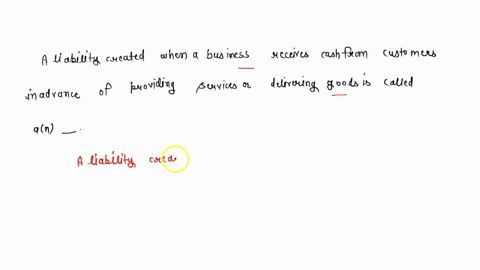 A liability created when a business receives cash from customers
in advance of providing services or delivering goods is called
a(n) __.
A liability crea